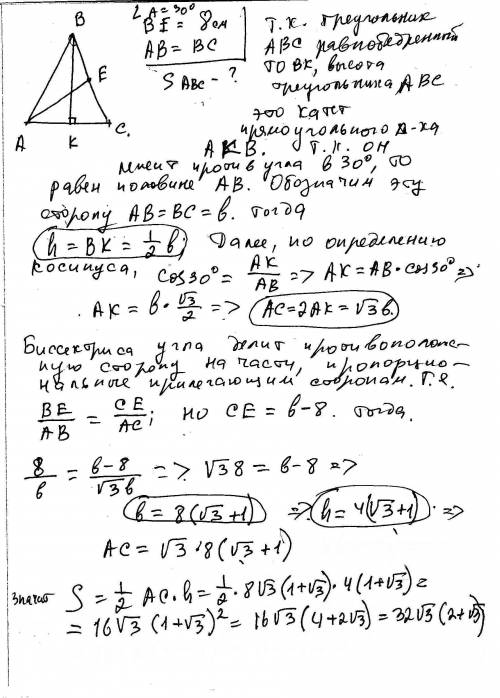 ∠A = 30°
BE = 8см
AB = BC
S ABC - ?
B
E
A
K
C.
Т.к. треугольник
ABC равнобедренный
то BK, высота
треугольника ABC
это катет
прямоугольного Δ-ка
AKB. Т.к. он
лежит против угла в 30°, то
равен половине AB. Обозначим эту
сторону AB = BC = b. Тогда
h = BK = 1/2 b; Далее, по определению
косинуса, cos30° = AK/AB => AK = AB · cos30° =>
AK = b · √3/2 => AC = 2AK = √3 b.
Биссектриса угла делит противополож-
ную сторону на части, пропорцио-
нальные прилегающим сторонам. Т.е.
BE/AB = CE/AC; но CE = b - 8. Тогда.
8/b = b-8/√3b => √3 8 = b - 8 =>
b = 8(√3 + 1) => h = 4(√3 + 1) · =>
AC = √3 · 8(√3 + 1)
значит S = 1/2 AC · h = 1/2 · 8√3(1+√3) · 4(1+√3) =
= 16√3 (1+√3)² = 16√3(4+2√3) = 32√3(2+√3)